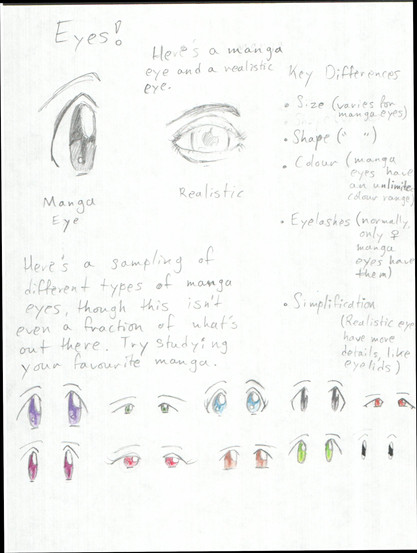 Eyes!
Here's a manga
eye and a realistic
eye.
Manga
Eye
Realistic
Key Differences
• Size (varies for
manga eyes)
• Shape (" ")
• Colour (manga
eyes have
an unlimited
colour range)
• Eyelashes (normally,
only ♀
manga
eyes have
them)
• Simplification
(Realistic eyes
have more
details, like
eyelids)
Here's a sampling of
different types of manga
eyes, though this isn't
even a fraction of what's
out there. Try studying
your favourite manga.